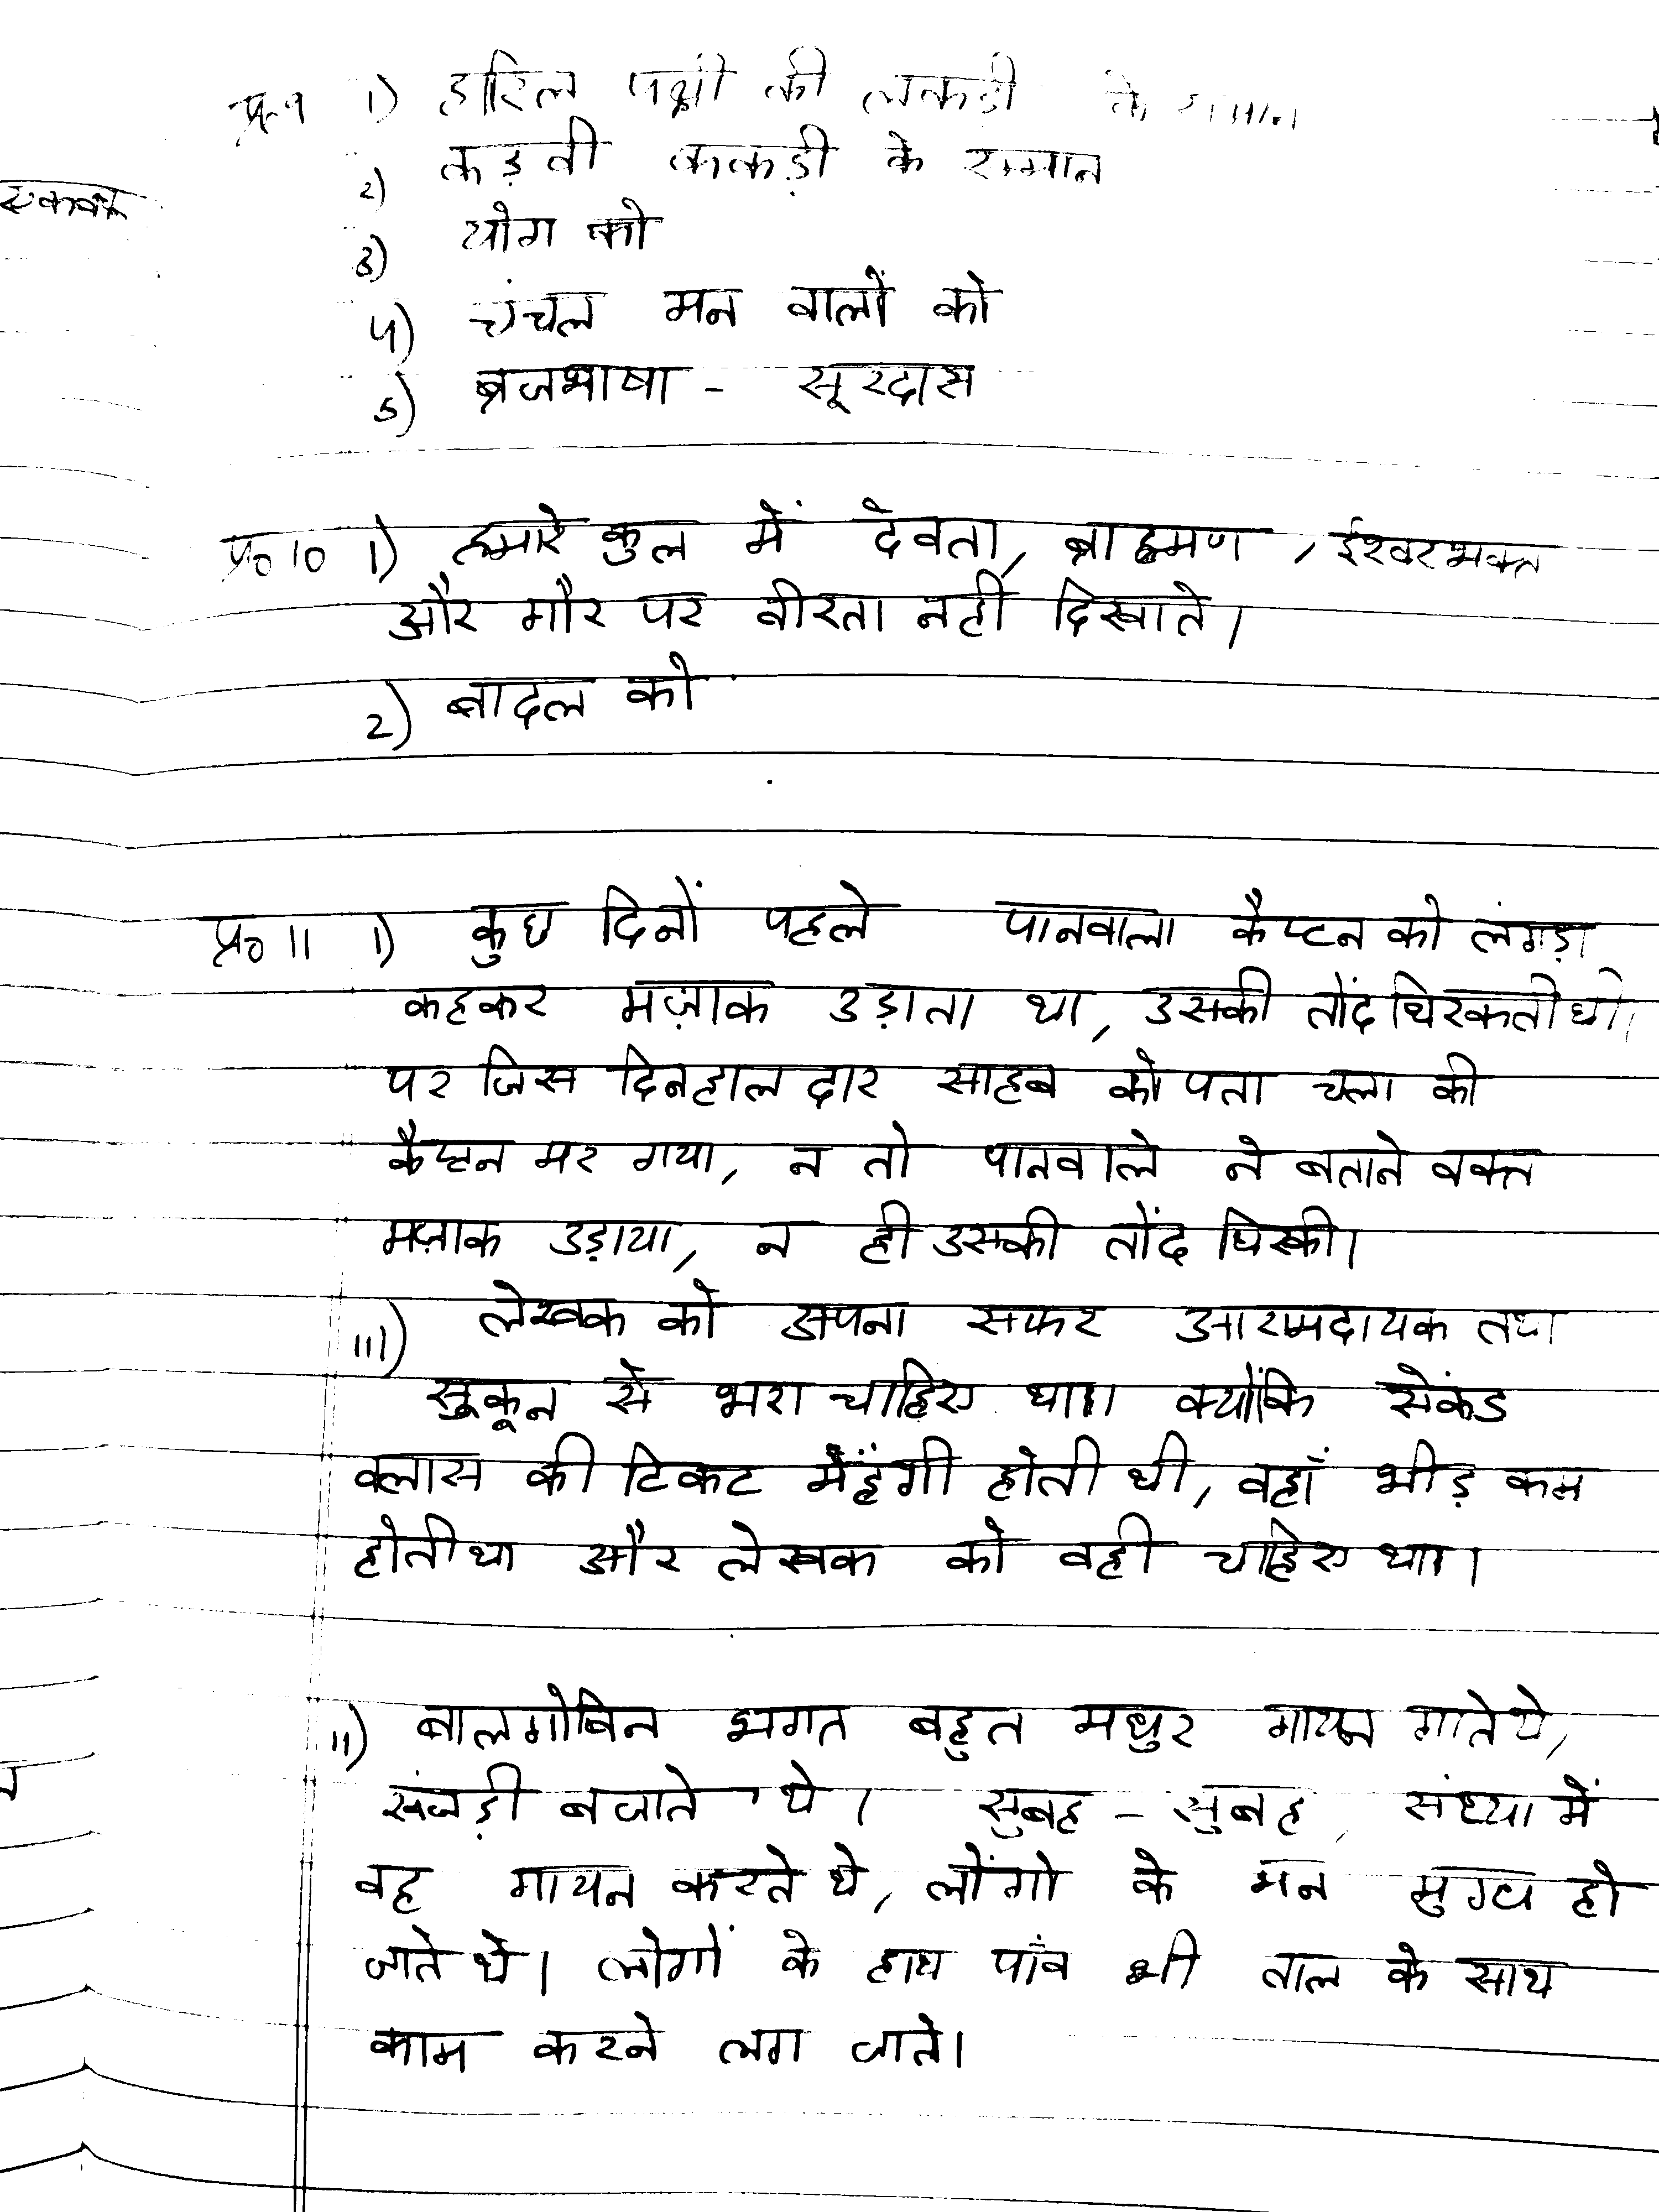 प्र०९ 1) हारिल पक्षी की लकड़ी के समान
2) कड़वी ककड़ी के समान
3) योग को
4) चंचल मन वालों को
5) ब्रजभाषा - सूरदास
प्र० 10 1) हमारे कुल में देवता, ब्राह्मण, ईश्वरभक्त
और गौर पर वीरता नहीं दिखाते।
2) बादल को
प्र० 11 1) कुछ दिनों पहले पानवाला कैप्टन को लंगड़ा
कहकर मज़ाक उड़ाता था, उसकी तोंद थिरकती थी।
पर जिस दिन हालदार साहब को पता चला की
कैप्टन मर गया, न तो पानवाले ने बताने वक्त
मज़ाक उड़ाया, न ही उसकी तोंद घिस्की।
111) लेखक को अपना सफर आरामदायक तथा
सुकून से भरा चाहिए था। क्योंकि सेकंड
क्लास की टिकट मेंहंगी होती थी, वहाँ भीड़ कम
होती था और लेखक को वही चाहिए था।
11) बालगोबिन भगत बहुत मधुर गायन गाते थे,
खंजड़ी बजाते थे। सुबह - सुबह, संध्या में
वह गायन करते थे, लोंगो के मन मुग्ध हो
जाते थे। लोगों के हाथ पाँव भी ताल के साथ
काम करने लग जाते।